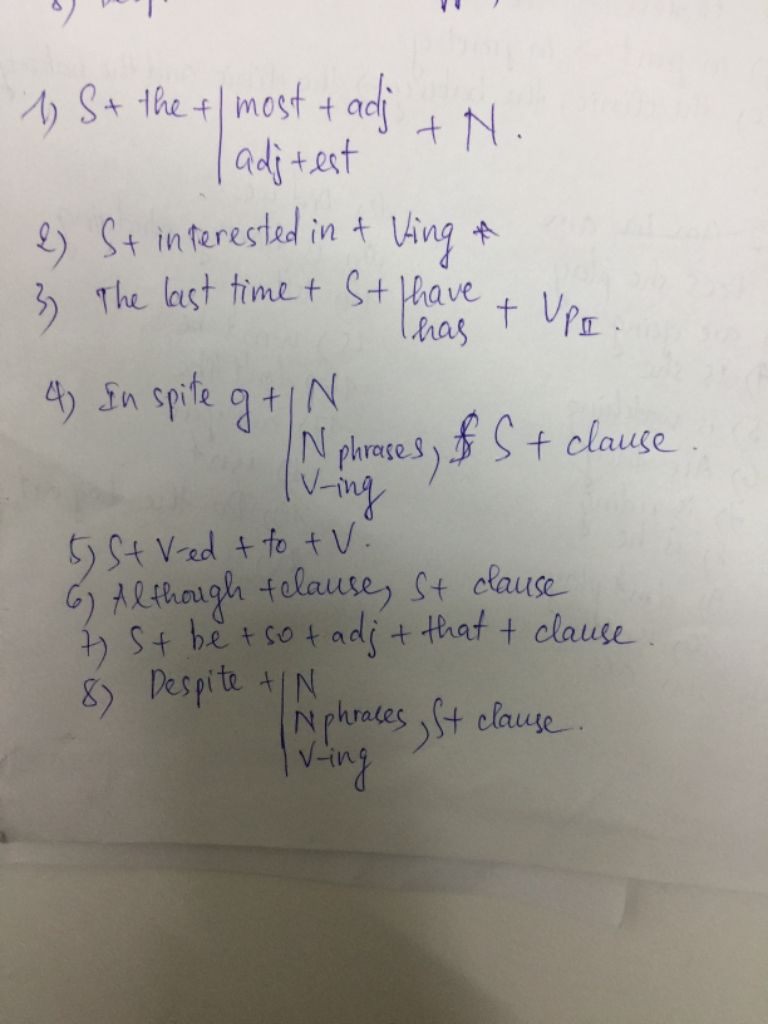 1) S + the + | most + adj + N.
adj + est
2) S + interested in + Ving *
3) The last time + S + | have + VpII.
has
4) In spite g + | N
N phrases, S + clause.
V-ing
5) S + V-ed + to + V.
6) Although + clause, S + clause
7) S + be + so + adj + that + clause.
8) Despite + | N
N phrases, S + clause.
V-ing